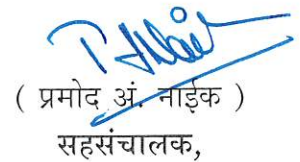 ( प्रमोद अं. नाईक )
सहसंचालक,